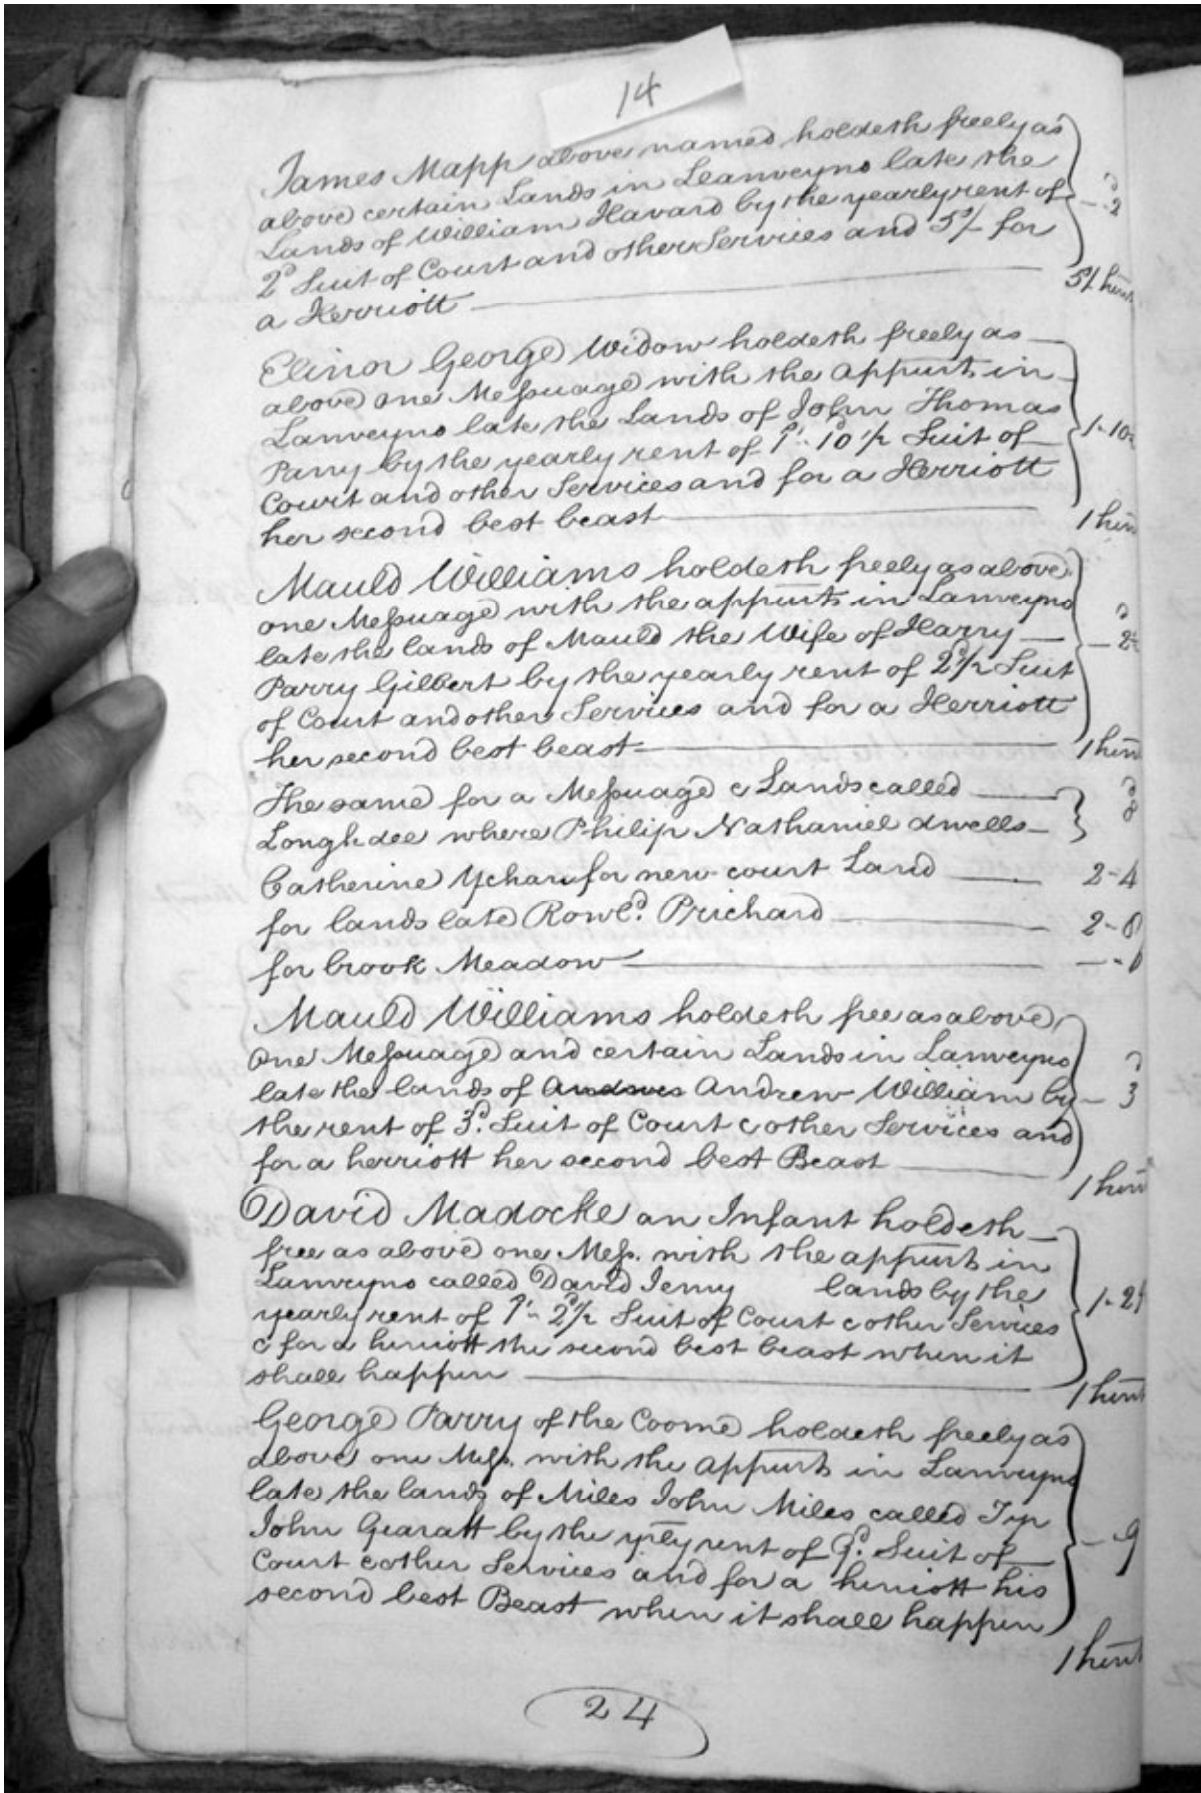 14
James Mapp above named holdeth freely as
above certain Lands in Leanveyno late the
Lands of William Havard by the yearly rent of
2d Suit of Court and other Services and 5/- for
a Herriott
- 2d
5/ herit
Elinor George Widow holdeth freely as
above one Messuage with the appurts in
Lanveyno late the Lands of John Thomas
Parry by the yearly rent of 1s. 10d 1/2 Suit of
Court and other Services and for a Herriott
her second best beast
1-10½
1 herit
Mauld Williams holdeth freely as above
one Messuage with the appurts in Lanveyno
late the lands of Mauld the Wife of Harry
Parry Gilbert by the yearly rent of 2d 1/2 Suit
of Court and other Services and for a Herriott
her second best beast
- 2d ½
1 herit
The same for a Messuage & Lands called
Longh dee where Philip Nathaniel dwells
8d
Catherine Ychan for new court Land 2-4
for lands late Rowld. Prichard 2-0
for brook Meadow
Mauld Williams holdeth free as above
one Messuage and certain Lands in Lanveyno
late the lands of Andrew William by
the rent of 3d. Suit of Court & other Services and
for a herriott her second best Beast
- 3d
1 herit
David Madocke an Infant holdeth
free as above one Mess. with the appurts in
Lanveyno called David Jenny lands by the
yearly rent of 1s- 2d 1/2 Suit of Court & other Services
& for a herriott the second best beast when it
shall happen
1-2½
1 herit
George Parry of the Coome holdeth freely as
above one Mess. with the appurts in Lanveyno
late the lands of Miles John Miles called Tyr
John Gearatt by the yrly rent of 9d. Suit of
Court & other Services and for a herriott his
second best Beast when it shall happen
- 9
1 herit
24